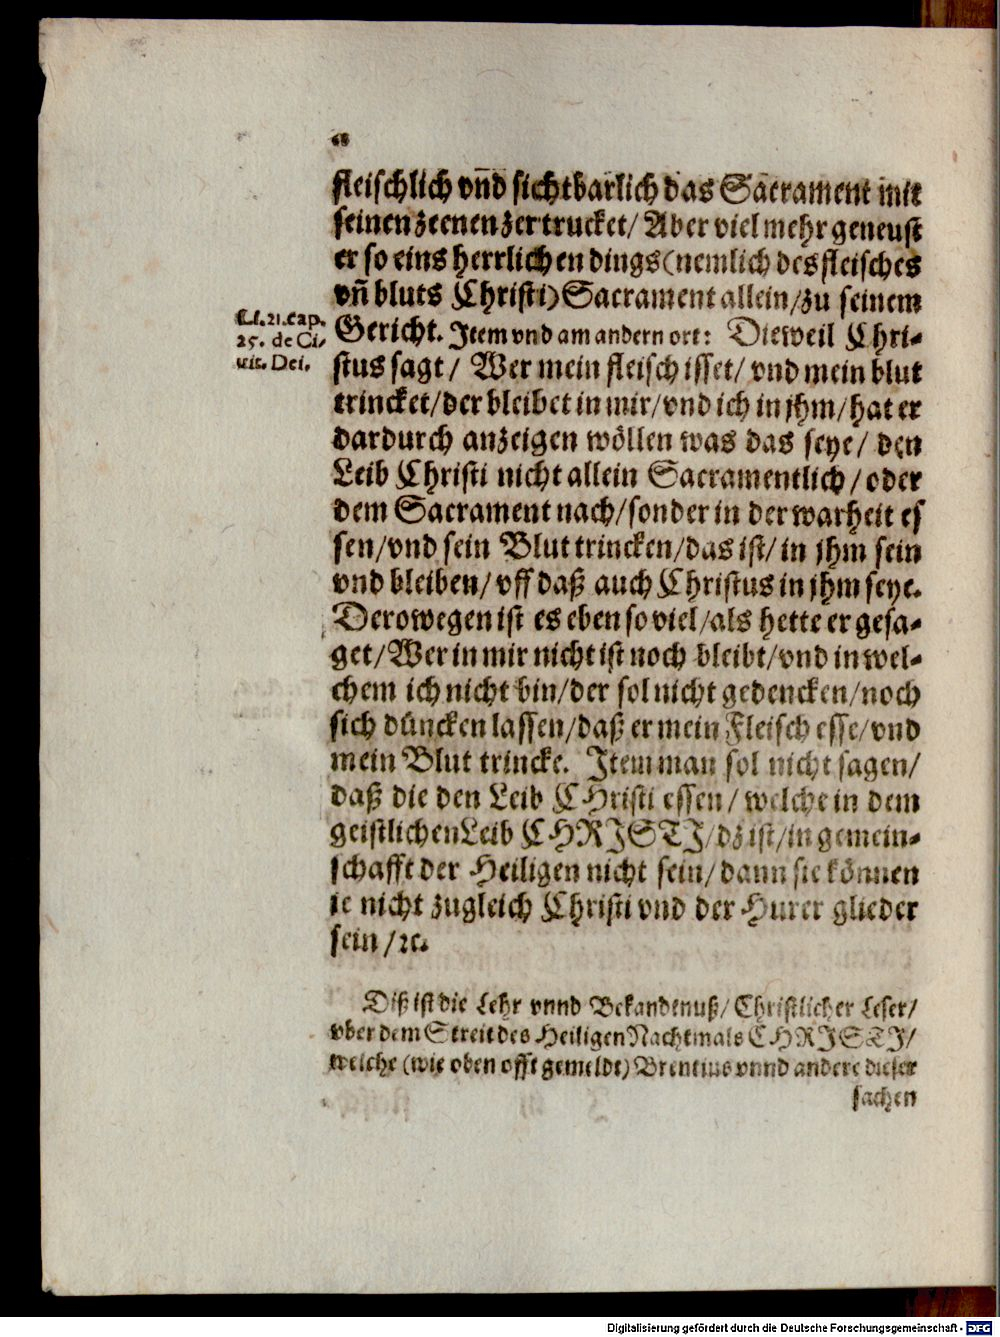 68
fleischlich vn̄d sichtbarlich das Sacrament mit
seinen zeenen zertrucket/ Aber viel mehr geneust
er so eins herrlichen dings (nemlich des fleisches
vn̄ bluts Christi) Sacrament allein/ zu seinem
Gericht. Item vnd am andern ort: Dieweil Chri-
stus sagt/ Wer mein fleisch isset/ vnd mein blut
trincket/ der bleibet in mir/ vnd ich in jhm/ hat er
dardurch anzeigen wöllen was das seye/ den
Leib Christi nicht allein Sacramentlich/ oder
dem Sacrament nach/ sonder in der warheit es
sen/ vnd sein Blut trincken/ das ist/ in jhm sein
vnd bleiben/ vff daß auch Christus in jhm seye.
Derowegen ist es eben so viel/ als hette er gesa-
get/ Wer in mir nicht ist noch bleibt/ vnd in wel-
chem ich nicht bin/ der sol nicht gedencken/ noch
sich düncken lassen/ daß er mein Fleisch esse/ vnd
mein Blut trincke. Item man sol nicht sagen/
daß die den Leib CHristi essen/ welche in dem
geistlichen Leib CHRISTI/ dz ist/ in gemein-
schafft der Heiligen nicht sein/ dann sie können
je nicht zugleich Christi vnd der Hurer glieder
sein/ ꝛc.
Li. 21. cap.
25. de Ci-
uit. Dei.
Diß ist die Lehr vnnd Bekandenuß/ Christlicher Leser/
vber dem Streit des Heiligen Nachtmals CHRISTI/
welche (wie oben offt gemeldt) Brentius vnnd andere dieser
sachen
Digitalisierung gefördert durch die Deutsche Forschungsgemeinschaft - DFG